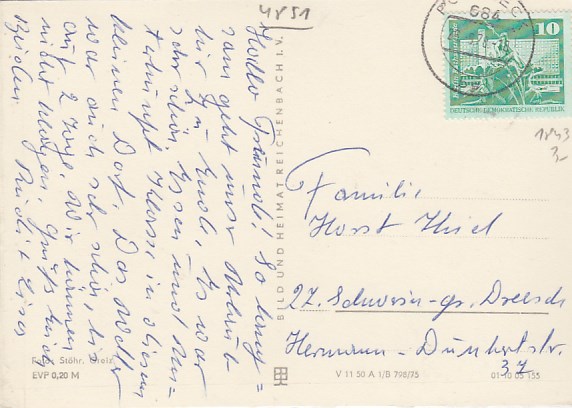 4851
Hallo Freunde! So lang=
sam geht unser Urlaub
hier zu Ende. Es war
sehr schön. Essen und Un-
terkunft Klasse in diesem
kleinen Dorf. Das Wetter
war auch sehr schön, bis
auf 2 Tage. Wir können
nicht klagen. Grüße Euch
Beiden
BILD UND HEIMAT REICHENBACH I. V.
684
10
DEUTSCHE DEMOKRATISCHE REPUBLIK
1843
3,-
Familie
Horst Thiel
27. Schwerin-gr. Dreesch
Hermann-Dunkerstr.
37
Foto: Stöhr, Greiz
EVP 0,20 M
V 11 50 A I/B 798/75
01 10 05 155